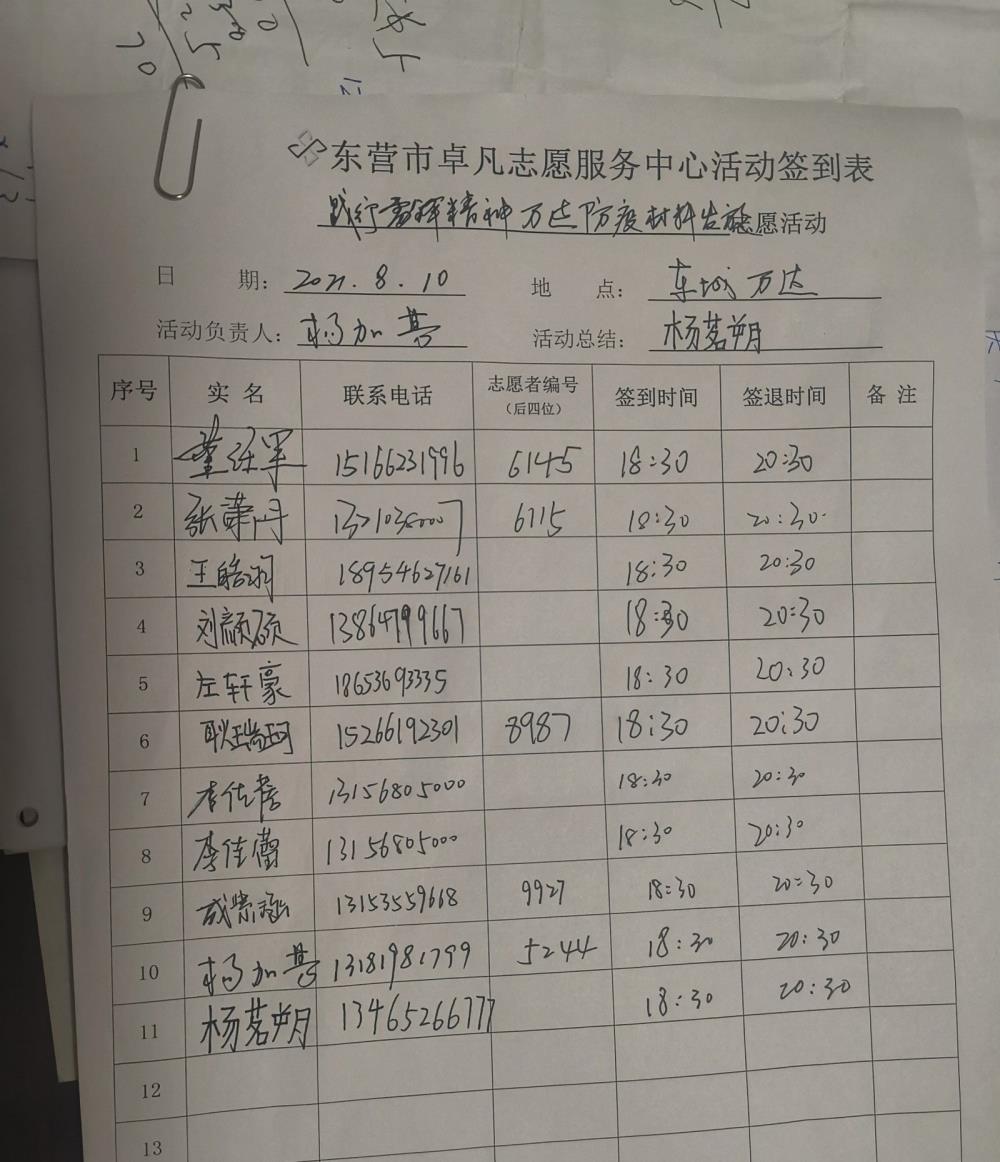 东营市卓凡志愿服务中心活动签到表
践行雷锋精神 万达防疫材料发放志愿活动
日 期： 2021.8.10 地 点： 东城万达
活动负责人： 杨加 活动总结： 杨茗朔
序号 实名 联系电话 志愿者编号（后四位） 签到时间 签退时间 备注
1 15166231996 6145 18:30 20:30
2 张萧丹 6715 18:30 20:30
3 王皓羽 18954627161 18:30 20:30
4 刘颜硕 13864799667 18:30 20:30
5 左轩豪 18653693335 18:30 20:30
6 耿瑞珂 15266192301 8987 18:30 20:30
7 李佳 13156805000 18:30 20:30
8 李佳蕾 13156805000 18:30 20:30
9 成紫涵 13153559668 9927 18:30 20:30
10 杨加 13181981799 5244 18:30 20:30
11 杨茗朔 13465266777 18:30 20:30
12
13